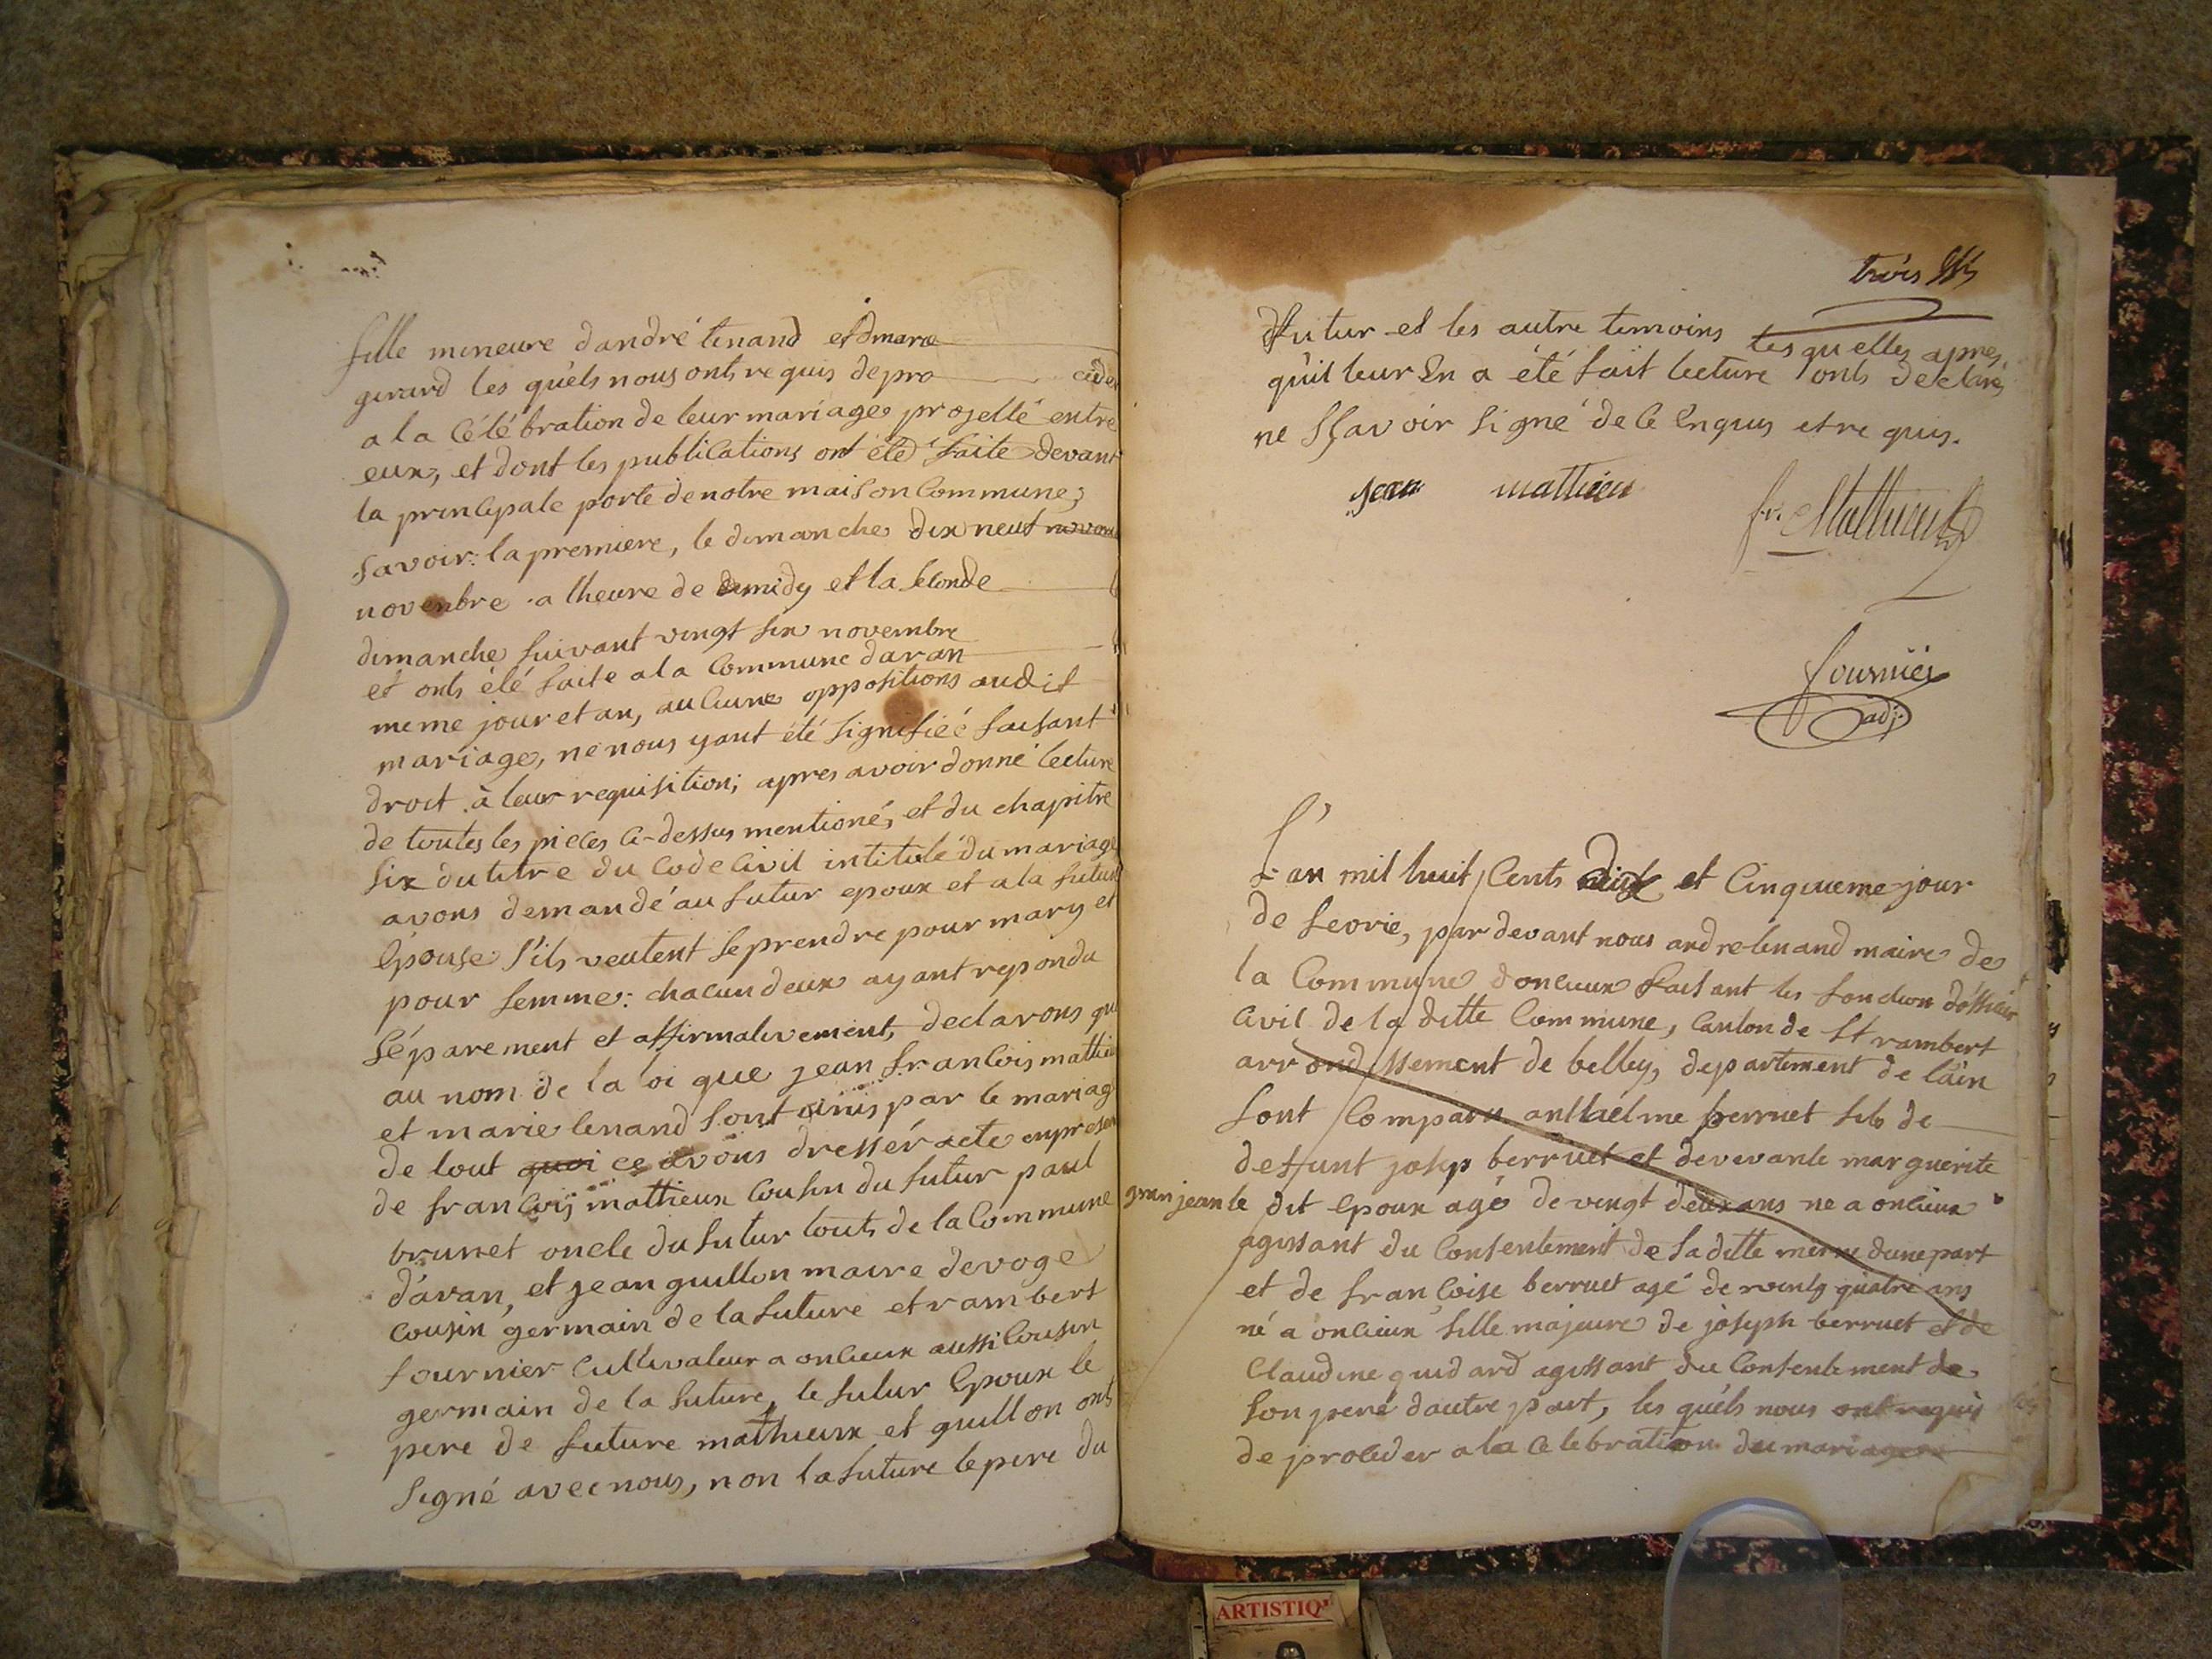 fille mineure dandré tenand et dmarie
girard les quels nous onts requis de pro céder
a la Célébration de leur mariage projetté entre
eux, et dont les publications ont éte faite devant
la principale porte de notre maison Commune,
savoir: la premiere, le dimanche dix neuf
novenbre a lheure de midy et la seconde
dimanche suivant vingt six novembre
et onts été faite a la Commune daran
meme jour et an, aucune oppositions audit
mariage, ne nous yant été signifiéé faisant
droit à leur requisition; apres avoir donné lecture
de toutes les pieces ci-dessus mentioné, et du chapitre
six du titre du Code Civil intitulé du mariage
avons demandé au futur epoux et a la future
épouse s'ils veulent se prendre pour mary et
pour femme: chacun deux ayant repondu
séparement et affirmativement, declarons que
au nom de la loi que jean francois mattieu
et marie tenand sont unis par le mariage
de tout quoi ce avons dressér acte en presen
de francois mattieux Cousin du futur paul
brunet oncle du futur touts de la Commune
d'aran, et jean guillon maire de voge
Cousin germain de la future et rambert
fournier Cultivateur a oncieux aussi Cousin
germain de la future, le futur Epoux le
pere de future mathieux et guillon onts
signé avec nous, non la future le pere du
trois
futur et les autre temoins lesquelles apres
qu'il leur En a été fait lecture onts declaré
ne sçavoir signé de ce Enquis et re quis.
jean mattieu
fr. Matthieu
fournier
adj.
L'an mil huit Cents dix et Cinquieme jour
de fevrie, par devant nous andre tenand maire de
la Commune doncieux faisant les fonction dofficier
Civil de la ditte Commune, Canton de St rambert
arrondissement de belley, departement de lain
sont Comparu anthaelme berruet fils de
deffunt josep berruet et de vevante marguerite
granjean le dit Epoux agé de vingt deux ans ne a oncieux
agissant du Consentement de sa ditte merre dune part
et de francoise berruet agé de vingt quatre ans
né a oncieux fille majeure de joseph berruet et de
Claudine guidard agissant du Consentement de
son pere dautre part, les quéls nous ont requis
de proceder a la Celebration du mariage
ARTISTIQ